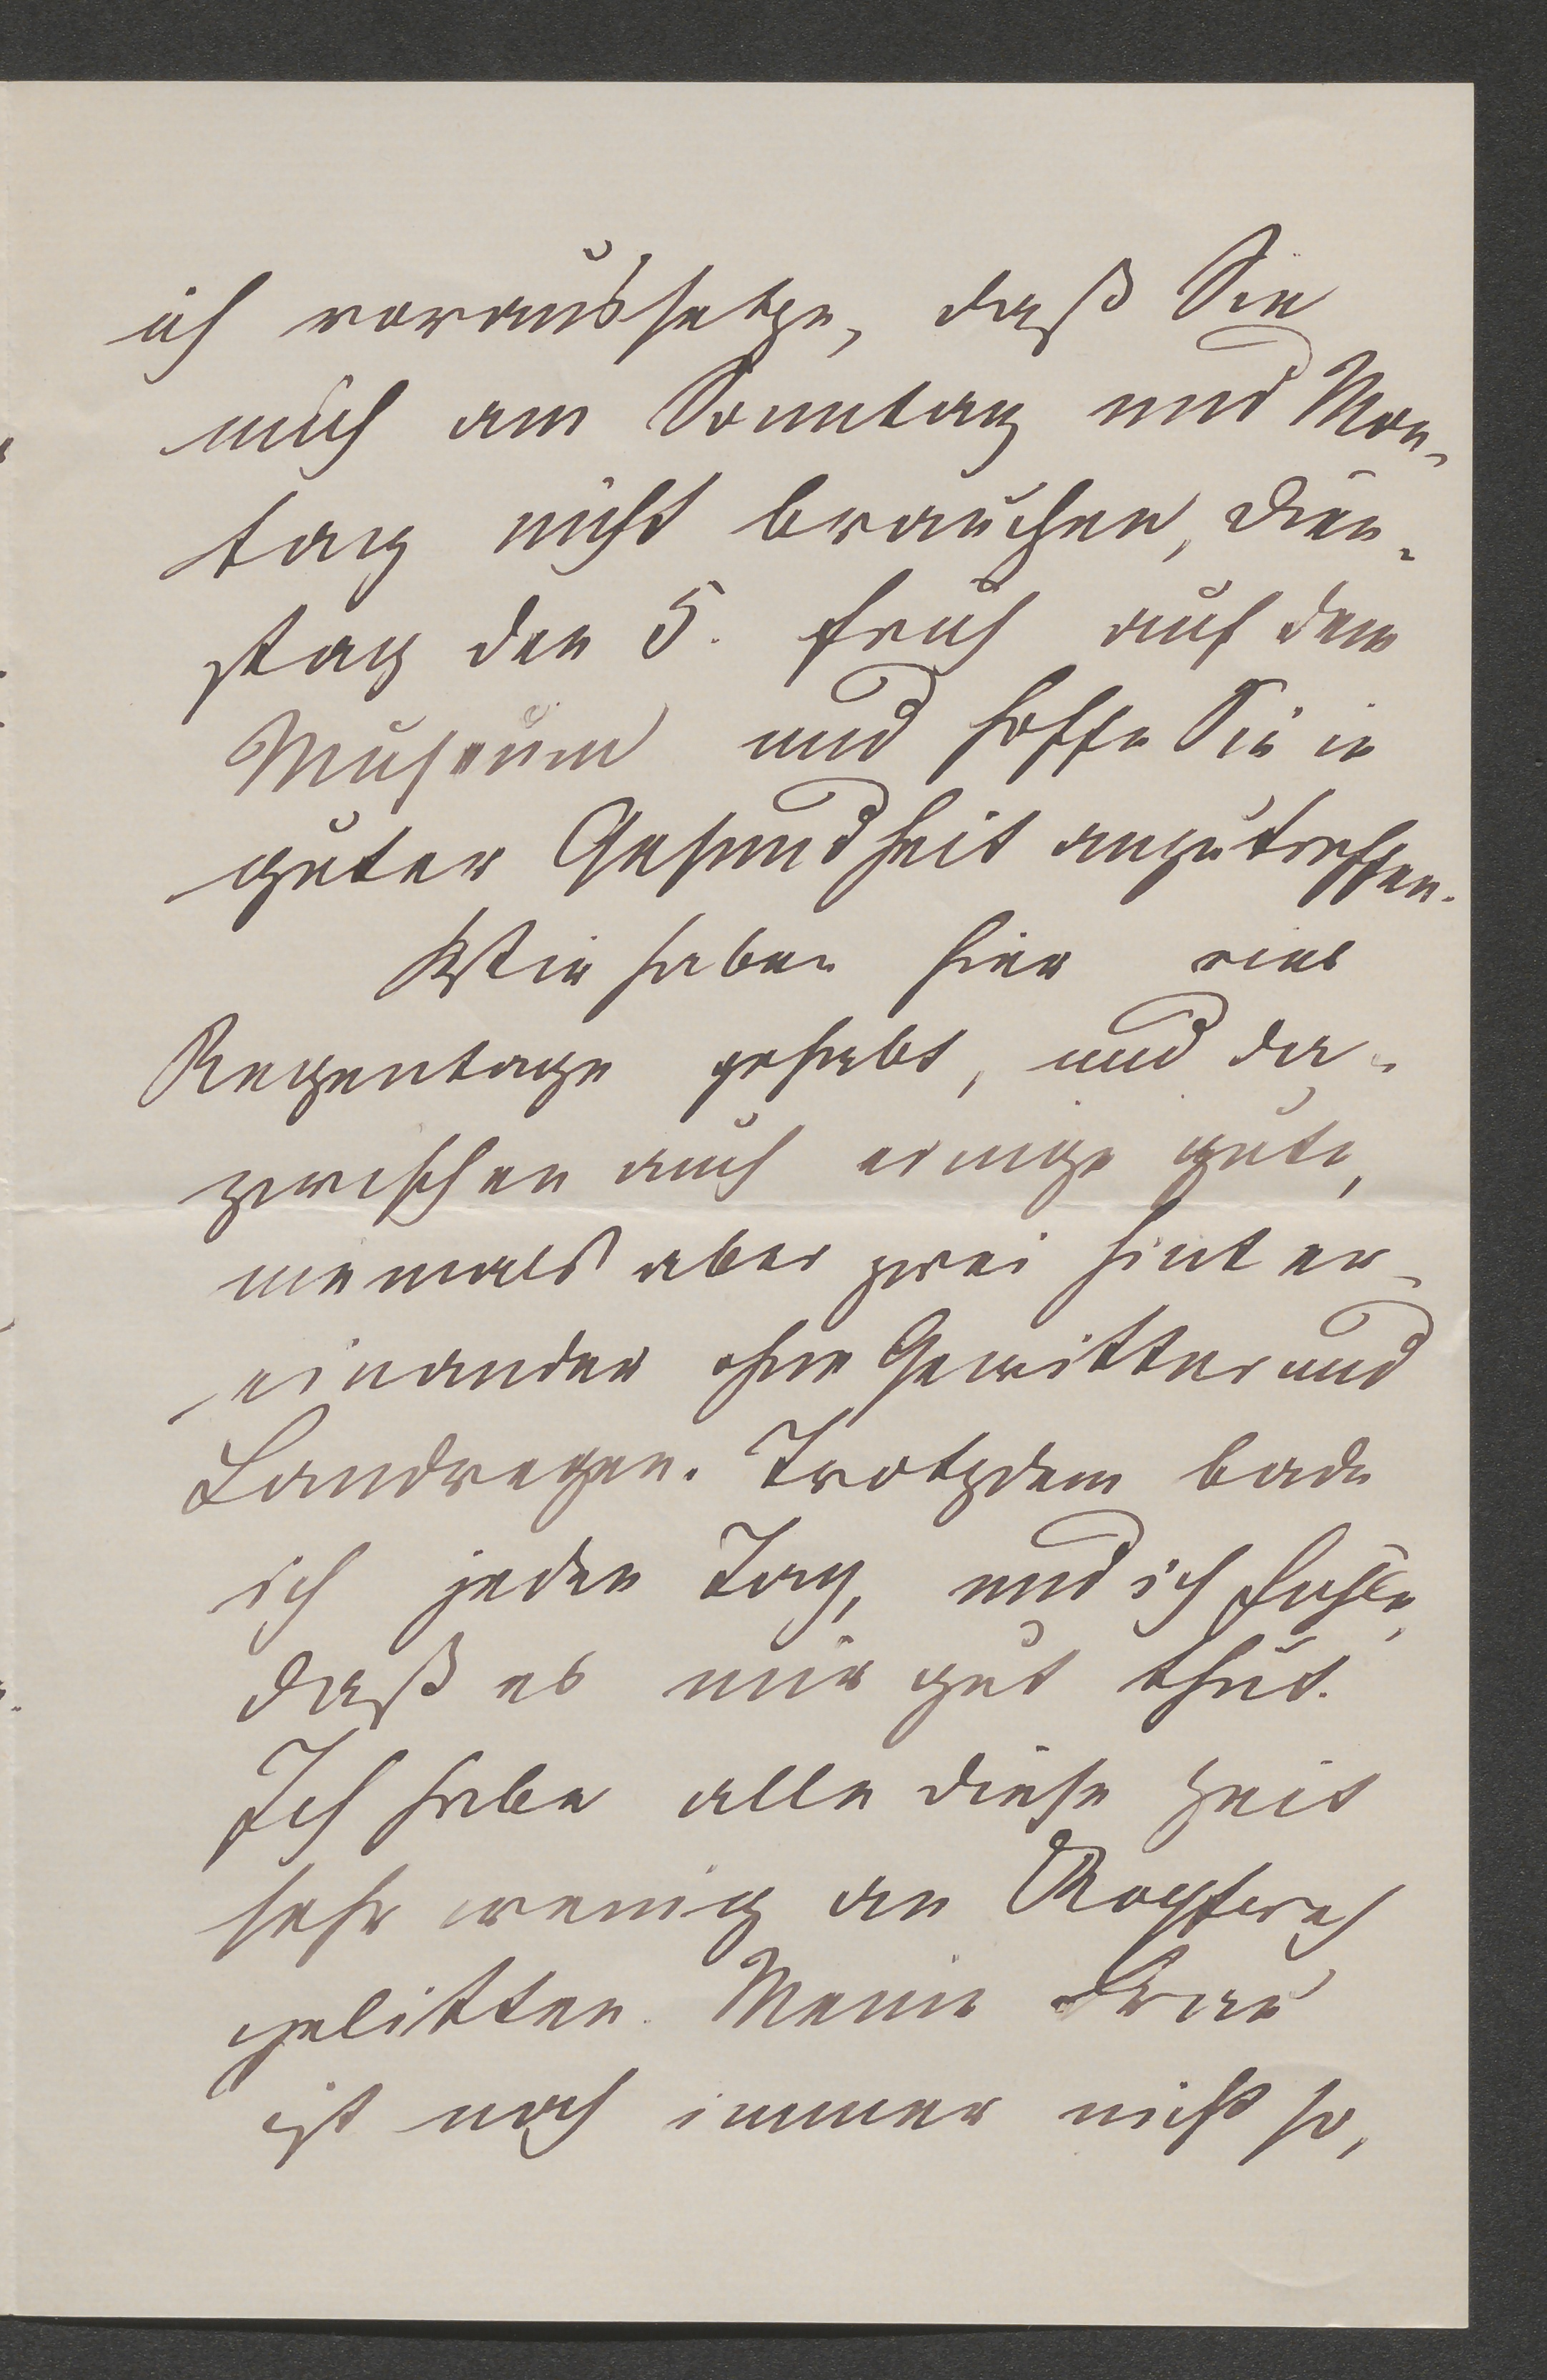 ich voraussetze, daß Sie
mich am Sonntag und Mon-
tag nicht brauchen, Dien-
stag den 5. früh auf dem
Museum und hoffe Sie in
guter Gesundheit anzutreffen.
Wir haben hier viel
Regentage gehabt, und da-
zwischen auch einige gute,
niemals aber zwei hinter-
einander ohne Gewitter und
Landregen. Trotzdem bade
ich jeden Tag, und ich fühle,
daß es mir gut thut.
Ich habe alle diese Zeit
sehr wenig an Kopfweh
gelitten. Meine Frau
ist noch immer nicht so,